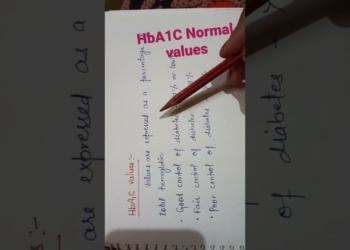 HbA1C Normal
values
HbA1C values:-
Values are expressed as a percentage
total hemoglobin.
• Good control of diabetes % or low
• Fair control of diabetes
• Poor control of diabetes
s:-
are expressed as a
of diabetes -